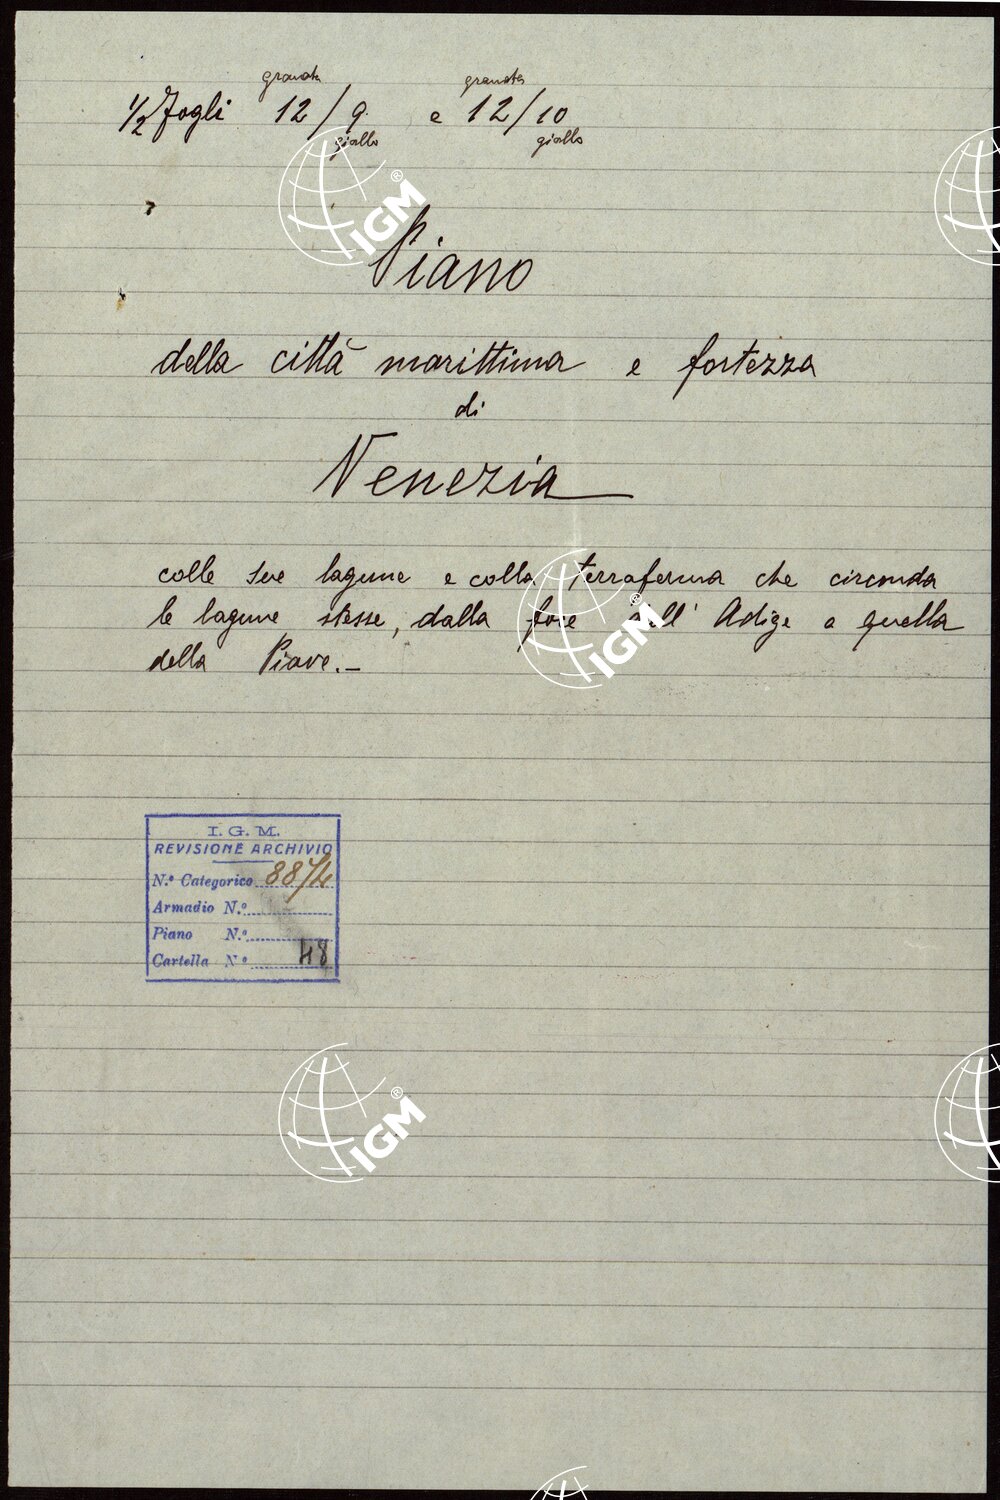 granata granata
1/2 Fogli 12/9 e 12/10
giallo giallo
Piano
della città marittima e fortezza
di
Venezia
colle sue lagune e colla terraferma che circonda
le lagune stesse, dalla foce dell' Adige a quella
della Piave.-
I. G. M.
REVISIONE ARCHIVIO
N.º Categorico 88/4
Armadio N.º
Piano N.º
Cartella N.º 48
IGM®
IGM®
IGM®